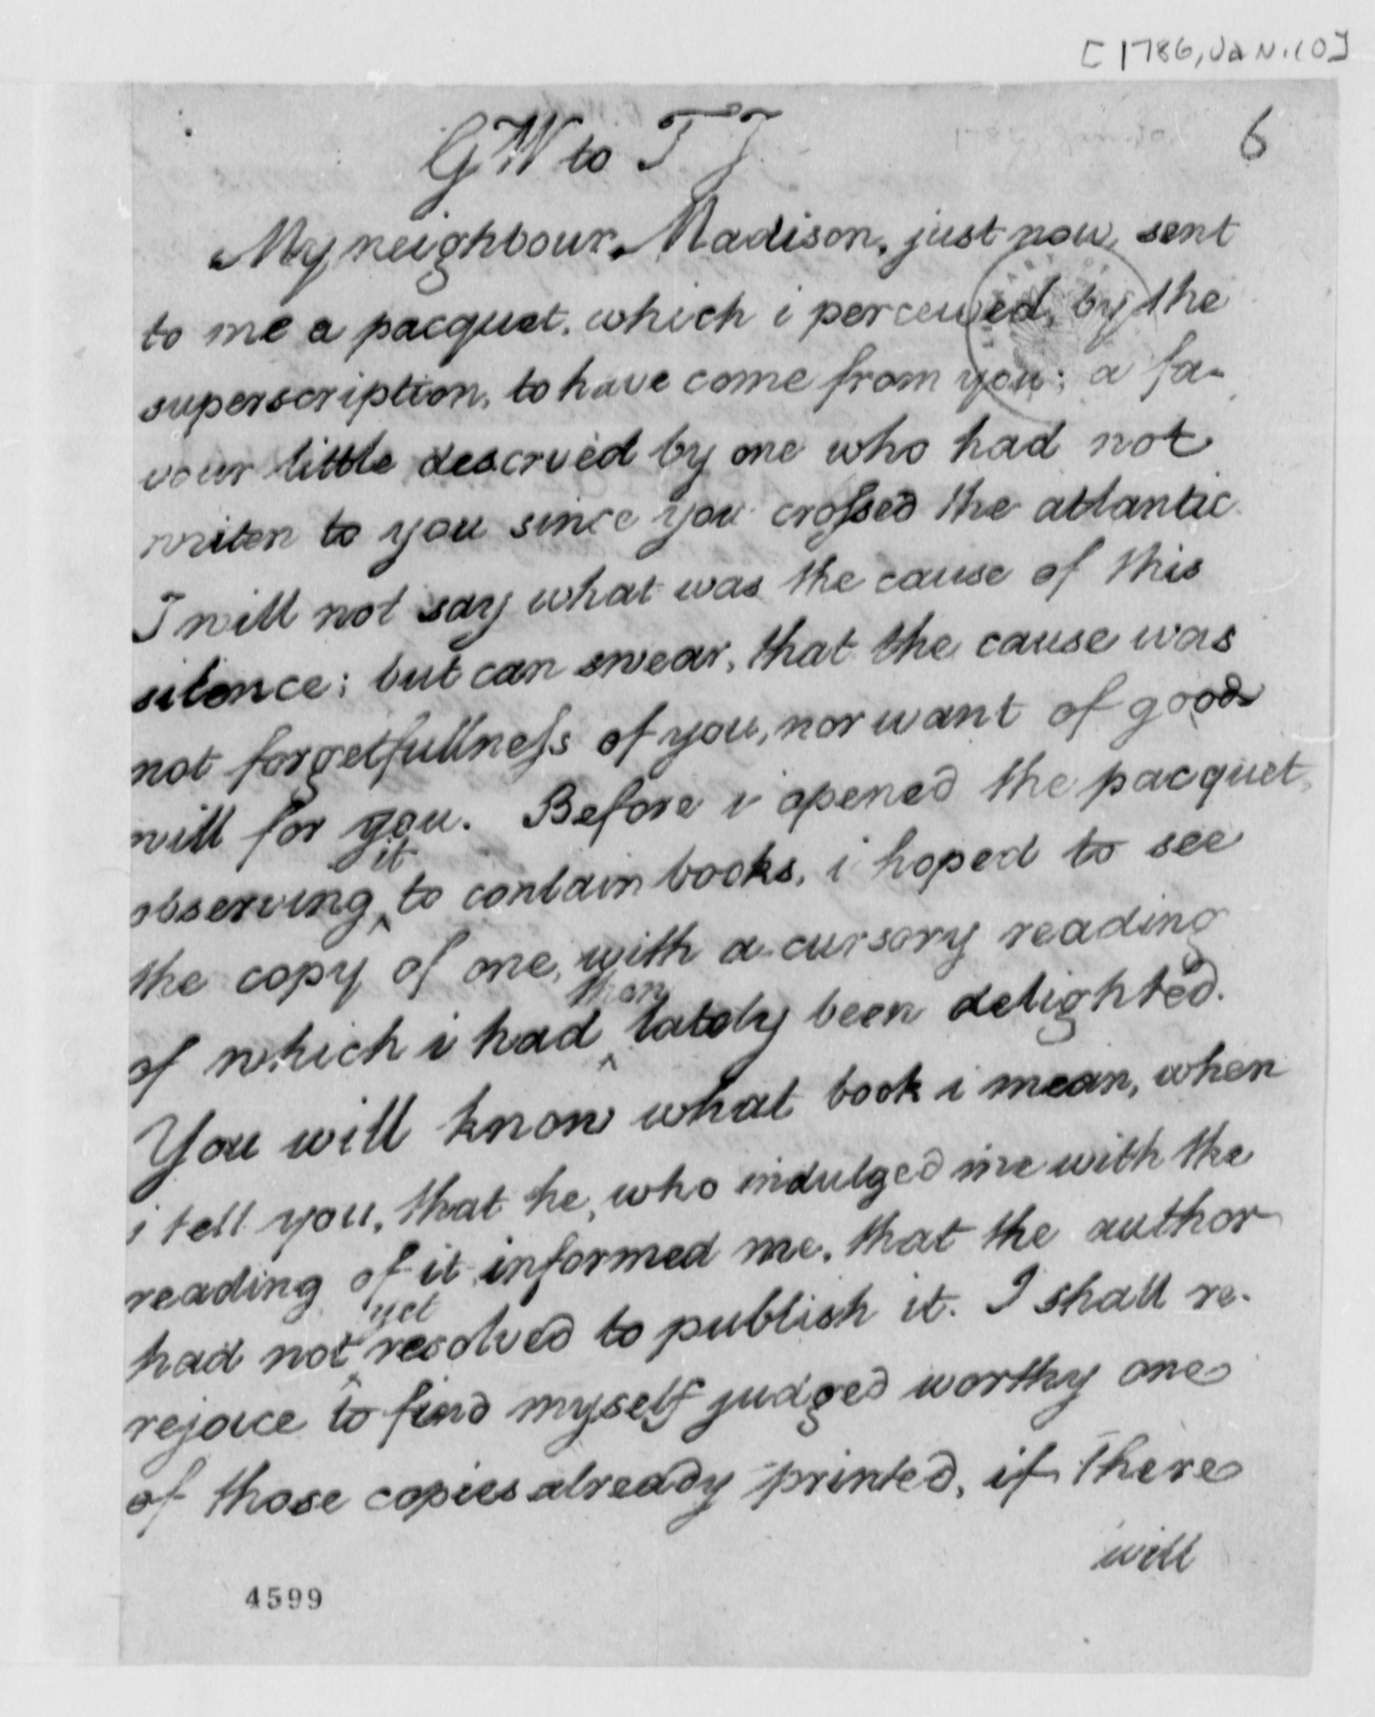 [1786, Jan. 10]
6
G W to T J.
My neighbour, Madison, just now, sent
to me a pacquet, which i perceived, by the
superscription, to have come from you; a fa-
vour little deserved by one who had not
writen to you since you crossed the atlantic.
I will not say what was the cause of this
silence; but can swear, that the cause was
not forgetfullness of you, nor want of good
will for you. Before i opened the pacquet,
it
observing ^ to contain books, i hoped to see
the copy of one, with a cursory reading
then
of which i had ^ lately been delighted.
You will know what book i mean, when
i tell you, that he, who indulged me with the
reading of it informed me, that the author
yet
had not ^ resolved to publish it. I shall re-
rejoice to find myself judged worthy one
of those copies already printed, if there
will
4599